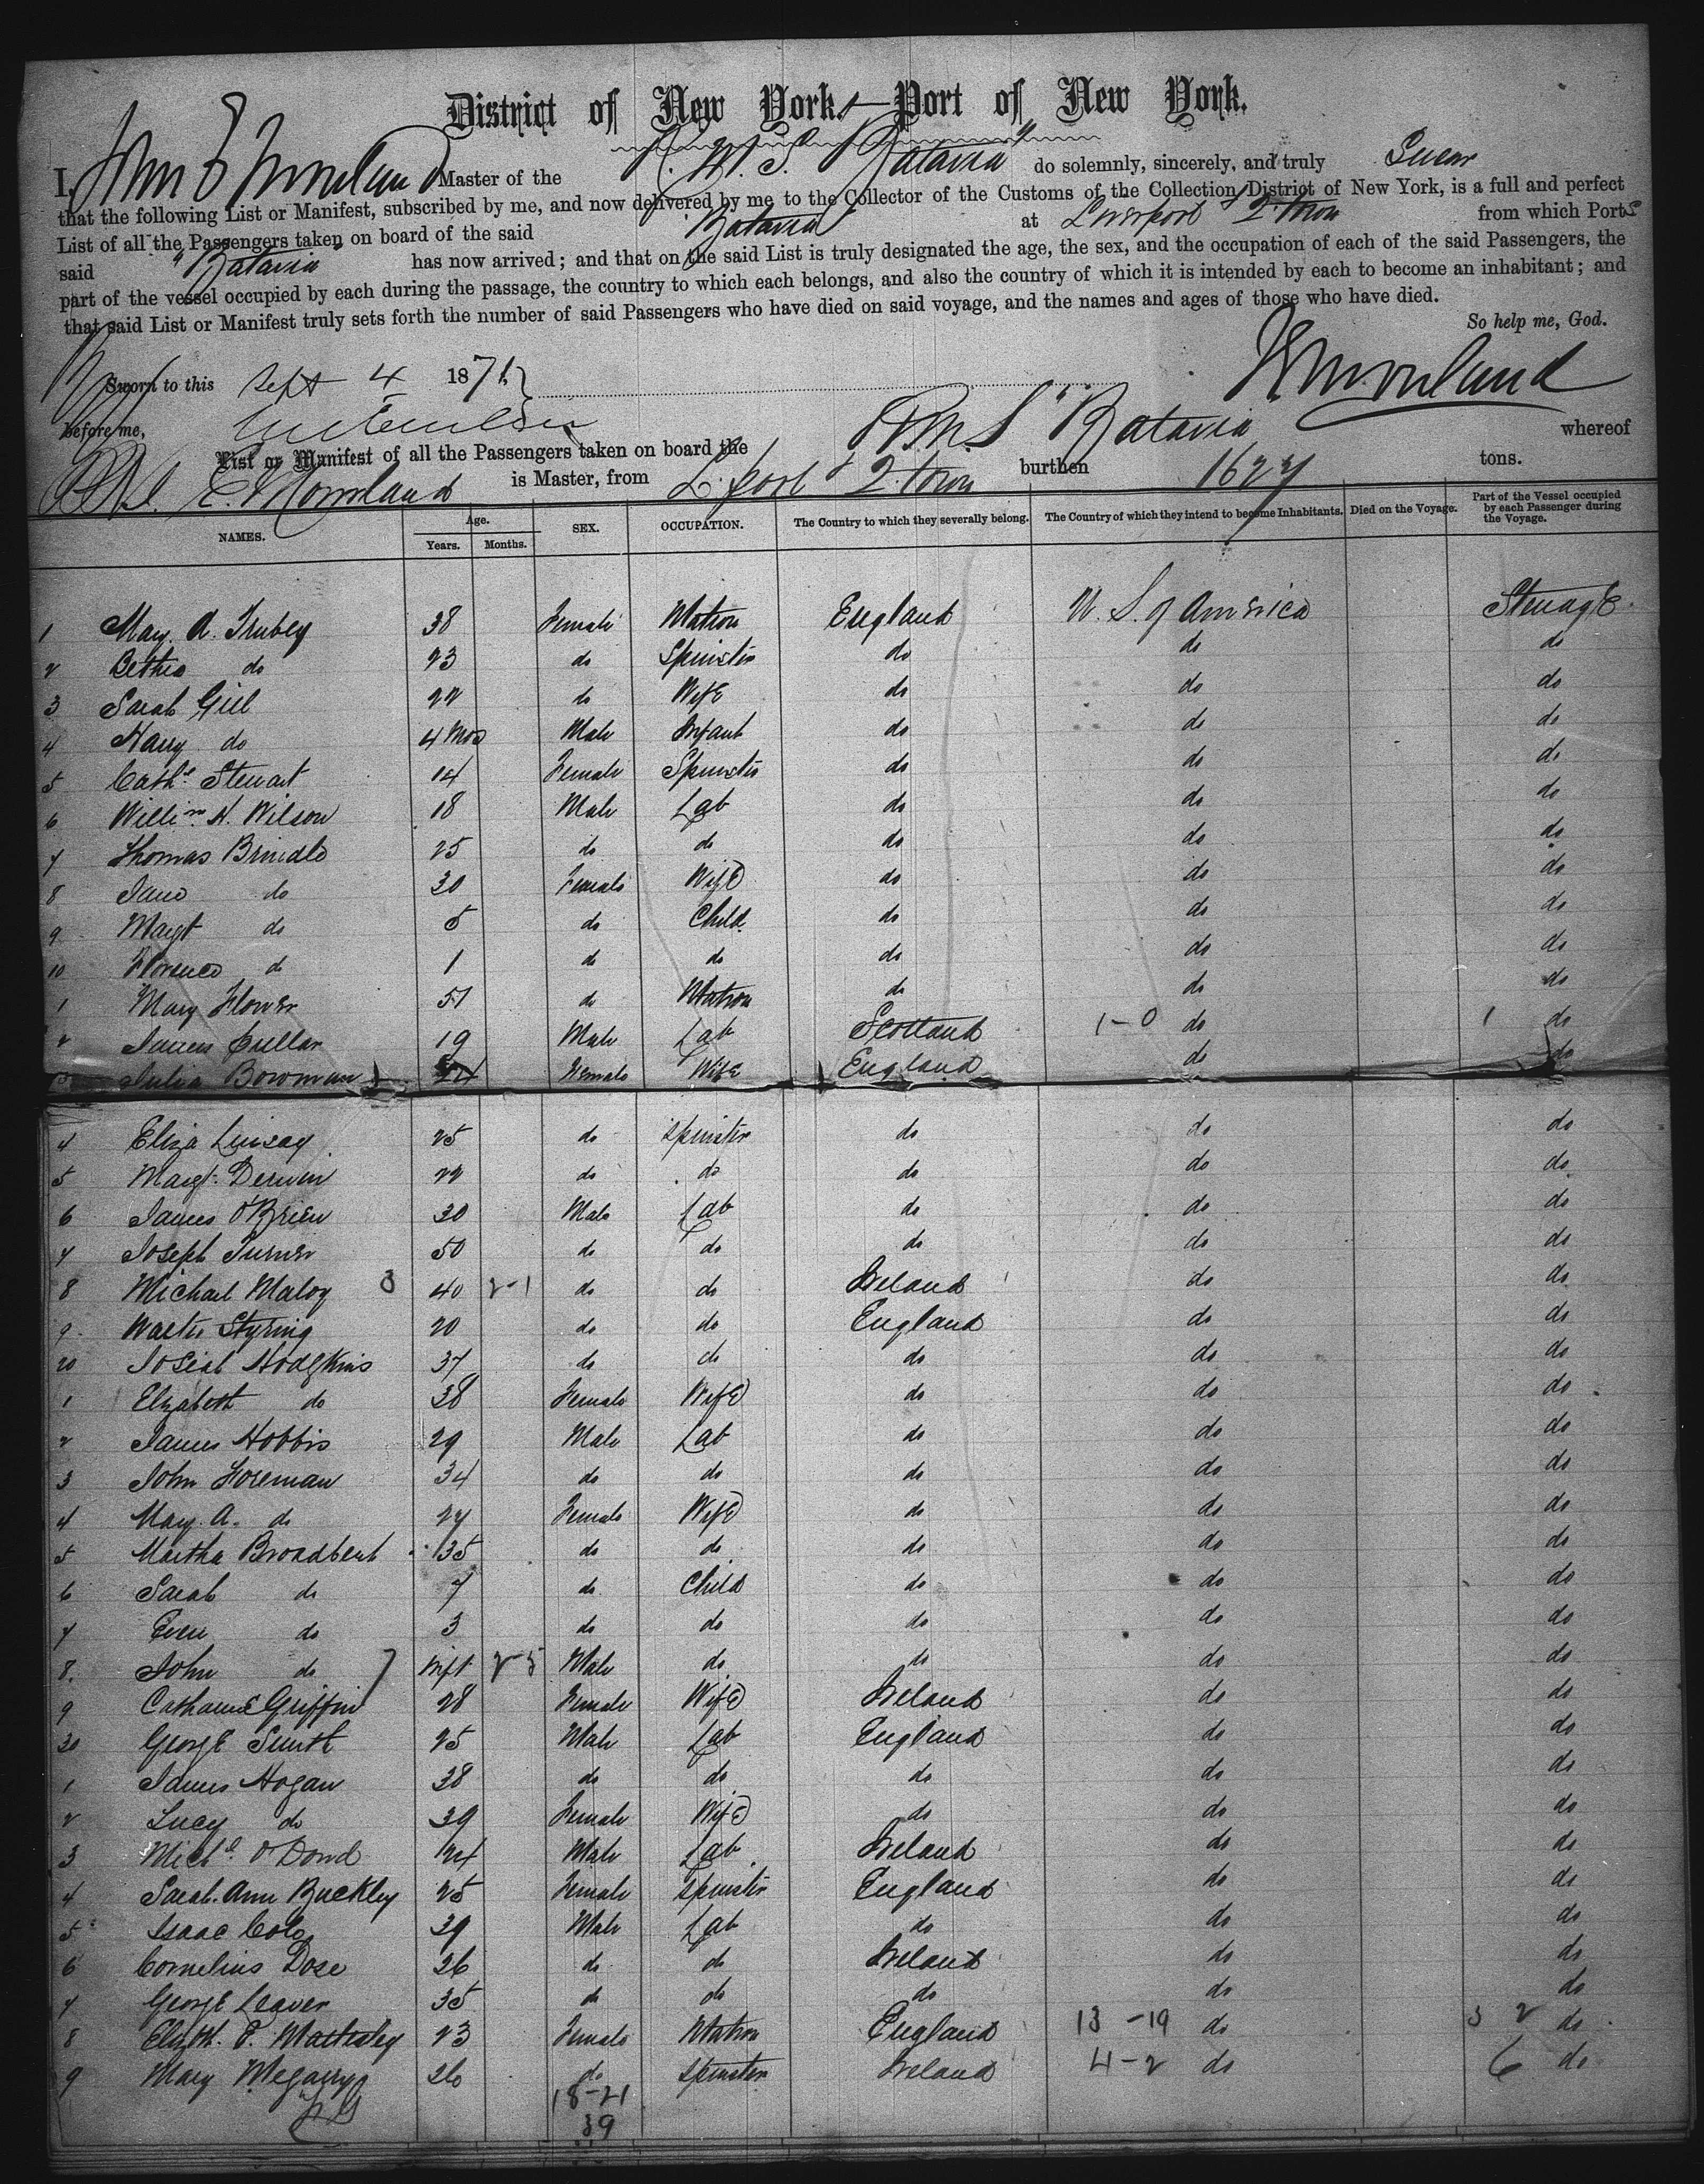 District of New York — Port of New York.
I, John E Moreland Master of the R. M. S. "Batavia" do solemnly, sincerely, and truly Swear
that the following List or Manifest, subscribed by me, and now delivered by me to the Collector of the Customs of the Collection District of New York, is a full and perfect
List of all the Passengers taken on board of the said Batavia at Liverpool & Q. town from which Ports
said "Batavia" has now arrived; and that on the said List is truly designated the age, the sex, and the occupation of each of the said Passengers, the
part of the vessel occupied by each during the passage, the country to which each belongs, and also the country of which it is intended by each to become an inhabitant; and
that said List or Manifest truly sets forth the number of said Passengers who have died on said voyage, and the names and ages of those who have died.
So help me, God.
Sworn to this Sept 4 187
J E Moreland
before me,
List or Manifest of all the Passengers taken on board the R.M.S "Batavia whereof
E. Moreland is Master, from L.pool & Q. town burthen 1627 tons.
NAMES. Age. Years. Months. SEX. OCCUPATION. The Country to which they severally belong. The Country of which they intend to become Inhabitants. Died on the Voyage. Part of the Vessel occupied by each Passenger during the Voyage.
1 Mary A. Trubey 38 Female Matron England U. S. of America Steerage
2 Bethia do 23 do Spinster do do do
3 Sarah Gill 22 do Wife do do do
4 Harry do 4 Mos Male Infant do do do
5 Cathe Stewart 14 Female Spinster do do do
6 Willim H. Wilson 18 Male Lab do do do
7 Thomas Brindle 25 do do do do do
8 Jane do 30 Female Wife do do do
9 Margt do 5 do Child do do do
10 Florence do 1 do do do do do
1 Mary Flower 51 do Matron do do do
2 James Cullar 19 Male Lab Scotland 1-0 do 1 do
3 Julia Bowman Female Wife England do do
4 Eliza Linsay 25 do Spinster do do do
5 Margt. Derwin 22 do do do do do
6 James O'Brien 30 Male Lab do do do
7 Joseph Turner 50 do do do do do
8 Michael Maloy 3 40 2-1 do do Ireland do do
9 Walter Styring 20 do do England do do
20 Josiah Hodgkins 37 do do do do do
1 Elizabeth do 38 Female Wife do do do
2 James Hobbis 29 Male Lab do do do
3 John Foreman 34 do do do do do
4 Mary A. do 27 Female Wife do do do
5 Martha Broadbent 35 do do do do do
6 Sarah do 7 do Child do do do
7 do 3 do do do do do
8 John do 7 Inft 2-5 Male do do do do
9 Catharine Griffin 28 Female Wife Ireland do do
30 George Smith 25 Male Lab England do do
1 James Hogan 38 do do do do do
2 Lucy do 39 Female Wife do do do
3 Michl O'Dowd 24 Male Lab Ireland do do
4 Sarah Ann Buckley 25 Female Spinster England do do
5 Isaac Cole 39 Male Lab do do do
6 Cornelius Dose 26 do do Ireland do do
7 George Leaver 35 do do do do do
8 Elizth. P. 23 Female Matron England 13-19 do 3 2 do
9 Mary Megarry 26 do Spinster Ireland 4-2 do 6 do
18-21
39